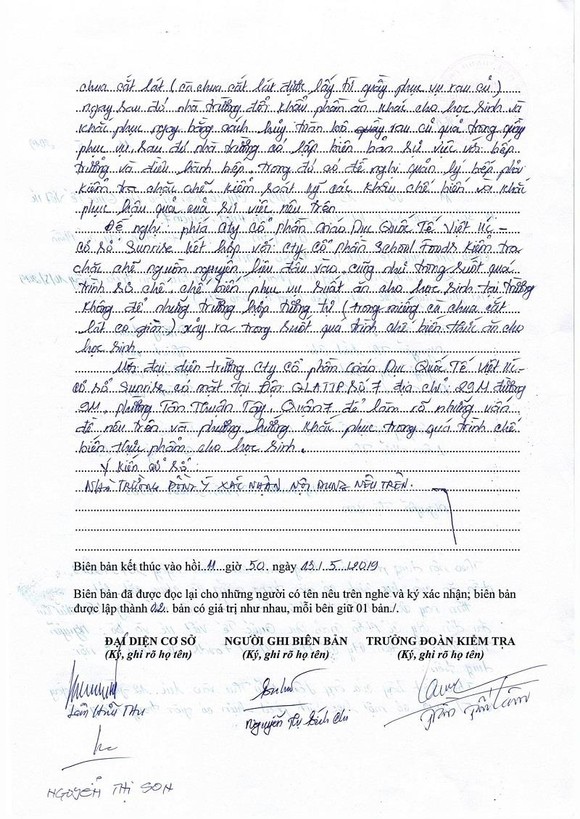 chưa cắt lát (cà chưa cắt lát được lấy từ quầy phục vụ rau củ)
ngay sau đó nhà trường đổi khẩu phần ăn khác cho học sinh và
khắc phục ngay bằng cách hủy toàn bộ quầy rau củ quả trong quầy
phục vụ. Sau đó nhà trường có lập biên bản sự việc với bếp
trưởng và điều hành bếp, trong đó có đề nghị quản lý bếp phải
kiểm tra chặt chẽ kiểm soát kỹ các khâu chế biến và khắc
phục hậu quả của sự việc nêu trên
Đề nghị phía Cty Cổ phần Giáo Dục Quốc Tế Việt Úc -
Cơ Sở Sunrise kết hợp với Cty Cổ phần School Foods kiểm tra
chặt chẽ nguồn nguyên liệu đầu vào cũng như trong suốt quá
trình sơ chế chế biến phục vụ suất ăn cho học sinh tại trường
không để những trường hợp tương tự (trong miếng cà chua cắt
lát có giòi) xảy ra trong suốt quá trình chế biến thức ăn cho
học sinh.
Mời đại diện trường Cty cổ phần Giáo Dục Quốc Tế Việt Úc-
Cơ Sở Sunrise có mặt tại Đội QLATTP Số 7 địa chỉ 29M đường
9M, phường Tân Thuận Tây, Quận 7 để làm rõ những vấn
đề nêu trên và phương hướng khắc phục trong quá trình chế
biến thực phẩm cho học sinh.
Ý kiến cơ sở:
NHÀ TRƯỜNG ĐỒNG Ý XÁC NHẬN NỘI DUNG NÊU TRÊN.
Biên bản kết thúc vào hồi 11 giờ 50 ngày 13/5/2019
Biên bản đã được đọc lại cho những người có tên nêu trên nghe và ký xác nhận; biên bản
được lập thành 02 bản có giá trị như nhau, mỗi bên giữ 01 bản./.
ĐẠI DIỆN CƠ SỞ NGƯỜI GHI BIÊN BẢN TRƯỞNG ĐOÀN KIỂM TRA
(Ký, ghi rõ họ tên) (Ký, ghi rõ họ tên) (Ký, ghi rõ họ tên)
Lâm Hữu Thu Nguyễn Thị Bích Chi Trần Tấn Tâm
NGUYỄN THỊ SON